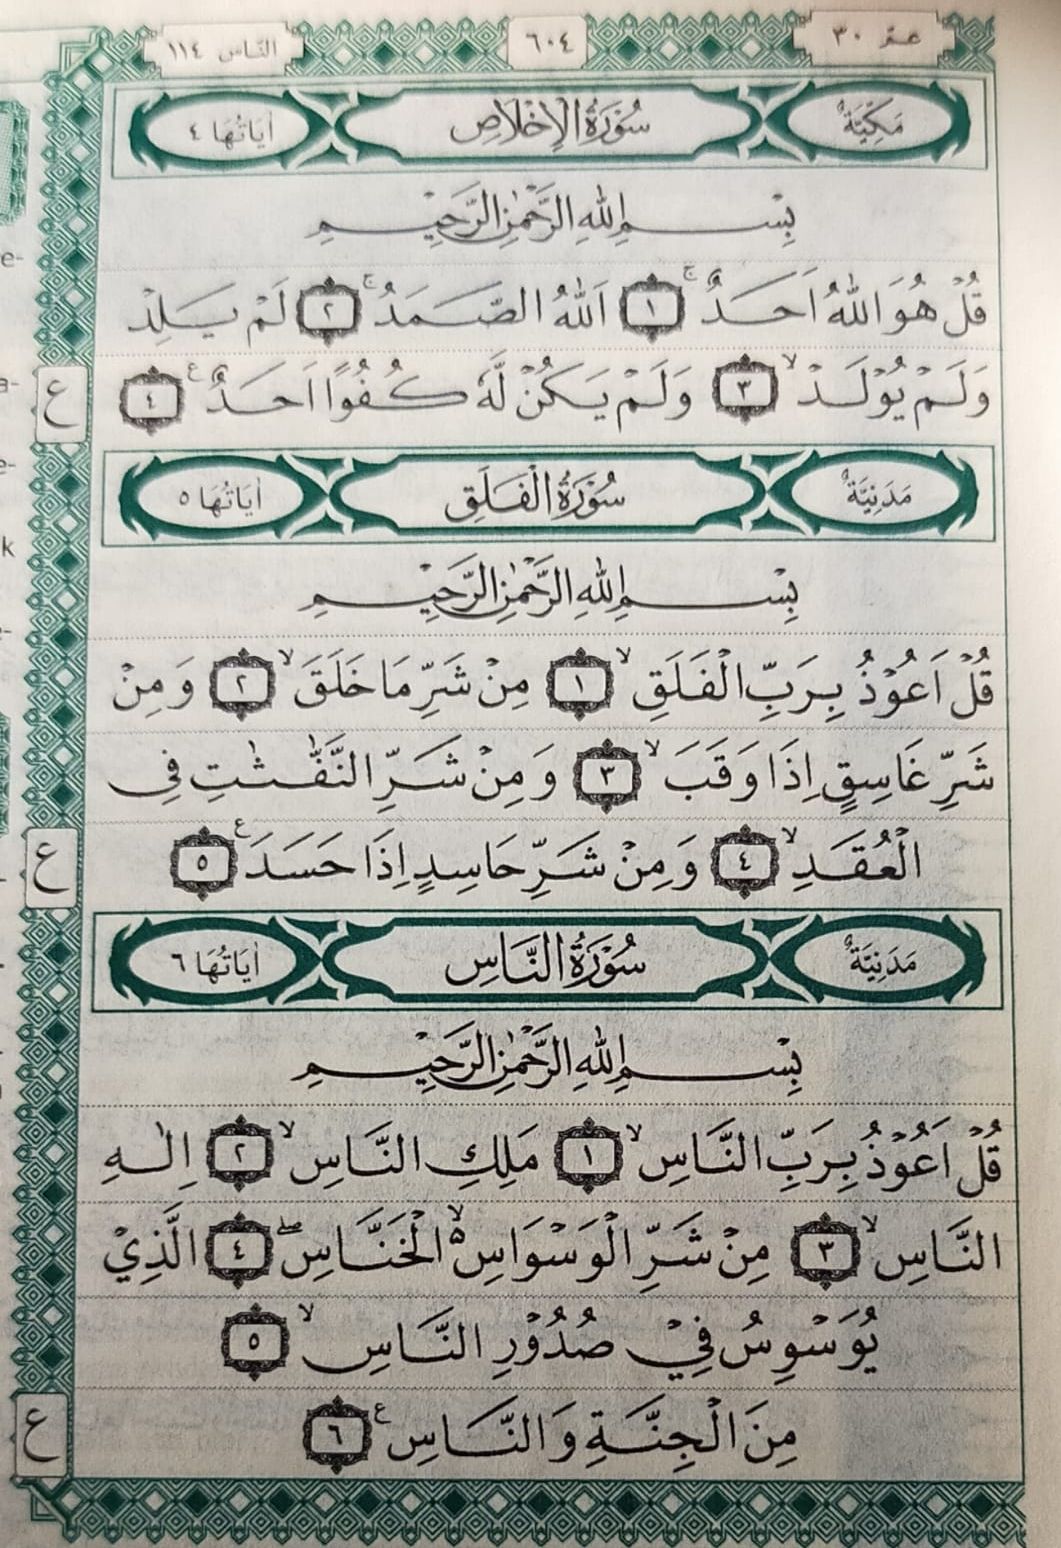 عمّ ٣٠ ٦٠٤ النّاس ١١٤
مَكِّيَّةٌ سُوْرَةُ الْاِخْلَاصِ اٰيَاتُهَا ٤
بِسْمِ اللّٰهِ الرَّحْمٰنِ الرَّحِيْمِ
قُلْ هُوَ اللّٰهُ اَحَدٌۚ ١ اَللّٰهُ الصَّمَدُۚ ٢ لَمْ يَلِدْ
وَلَمْ يُوْلَدْۙ ٣ وَلَمْ يَكُنْ لَّهٗ كُفُوًا اَحَدٌ ࣖ ٤
ع
مَدَنِيَّةٌ سُوْرَةُ الْفَلَقِ اٰيَاتُهَا ٥
بِسْمِ اللّٰهِ الرَّحْمٰنِ الرَّحِيْمِ
قُلْ اَعُوْذُ بِرَبِّ الْفَلَقِۙ ١ مِنْ شَرِّ مَا خَلَقَۙ ٢ وَمِنْ
شَرِّ غَاسِقٍ اِذَا وَقَبَۙ ٣ وَمِنْ شَرِّ النَّفّٰثٰتِ فِى
الْعُقَدِۙ ٤ وَمِنْ شَرِّ حَاسِدٍ اِذَا حَسَدَ ࣖ ٥
ع
مَدَنِيَّةٌ سُوْرَةُ النَّاسِ اٰيَاتُهَا ٦
بِسْمِ اللّٰهِ الرَّحْمٰنِ الرَّحِيْمِ
قُلْ اَعُوْذُ بِرَبِّ النَّاسِۙ ١ مَلِكِ النَّاسِۙ ٢ اِلٰهِ
النَّاسِۙ ٣ مِنْ شَرِّ الْوَسْوَاسِ ەۙ الْخَنَّاسِۖ ٤ الَّذِيْ
يُوَسْوِسُ فِيْ صُدُوْرِ النَّاسِۙ ٥
مِنَ الْجِنَّةِ وَالنَّاسِ ࣖ ٦
ع